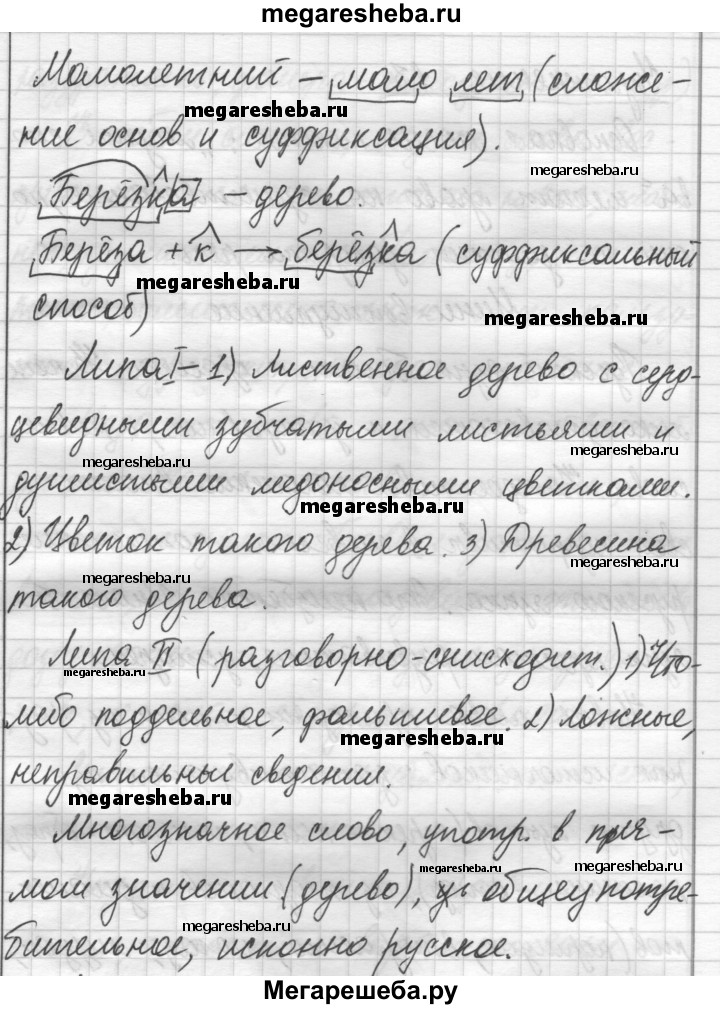 megaresheba.ru
Малолетний – мало лет (сложе-
megaresheba.ru
ние основ и суффиксация).
megaresheba.ru
Берёзка – дерево.
Берёза + к → берёзка (суффиксальный
megaresheba.ru
способ)
megaresheba.ru
Липа I – 1) Лиственное дерево с серд-
цевидными зубчатыми листьями и
megaresheba.ru
megaresheba.ru
душистыми медоносными цветками.
megaresheba.ru
2) Цветок такого дерева. 3) Древесина
megaresheba.ru
megaresheba.ru
такого дерева.
Липа II (разговорно-снисходит.) 1) Что-
megaresheba.ru
megaresheba.ru
либо поддельное, фальшивое. 2) Ложные,
megaresheba.ru
неправильны сведения.
megaresheba.ru
Многозначное слово, употр. в пря-
megaresheba.ru
megaresheba.ru
мом значении (дерево), общеупотре-
megaresheba.ru
бительное, исконно русское.
megaresheba.ru
Мегарешеба.ру